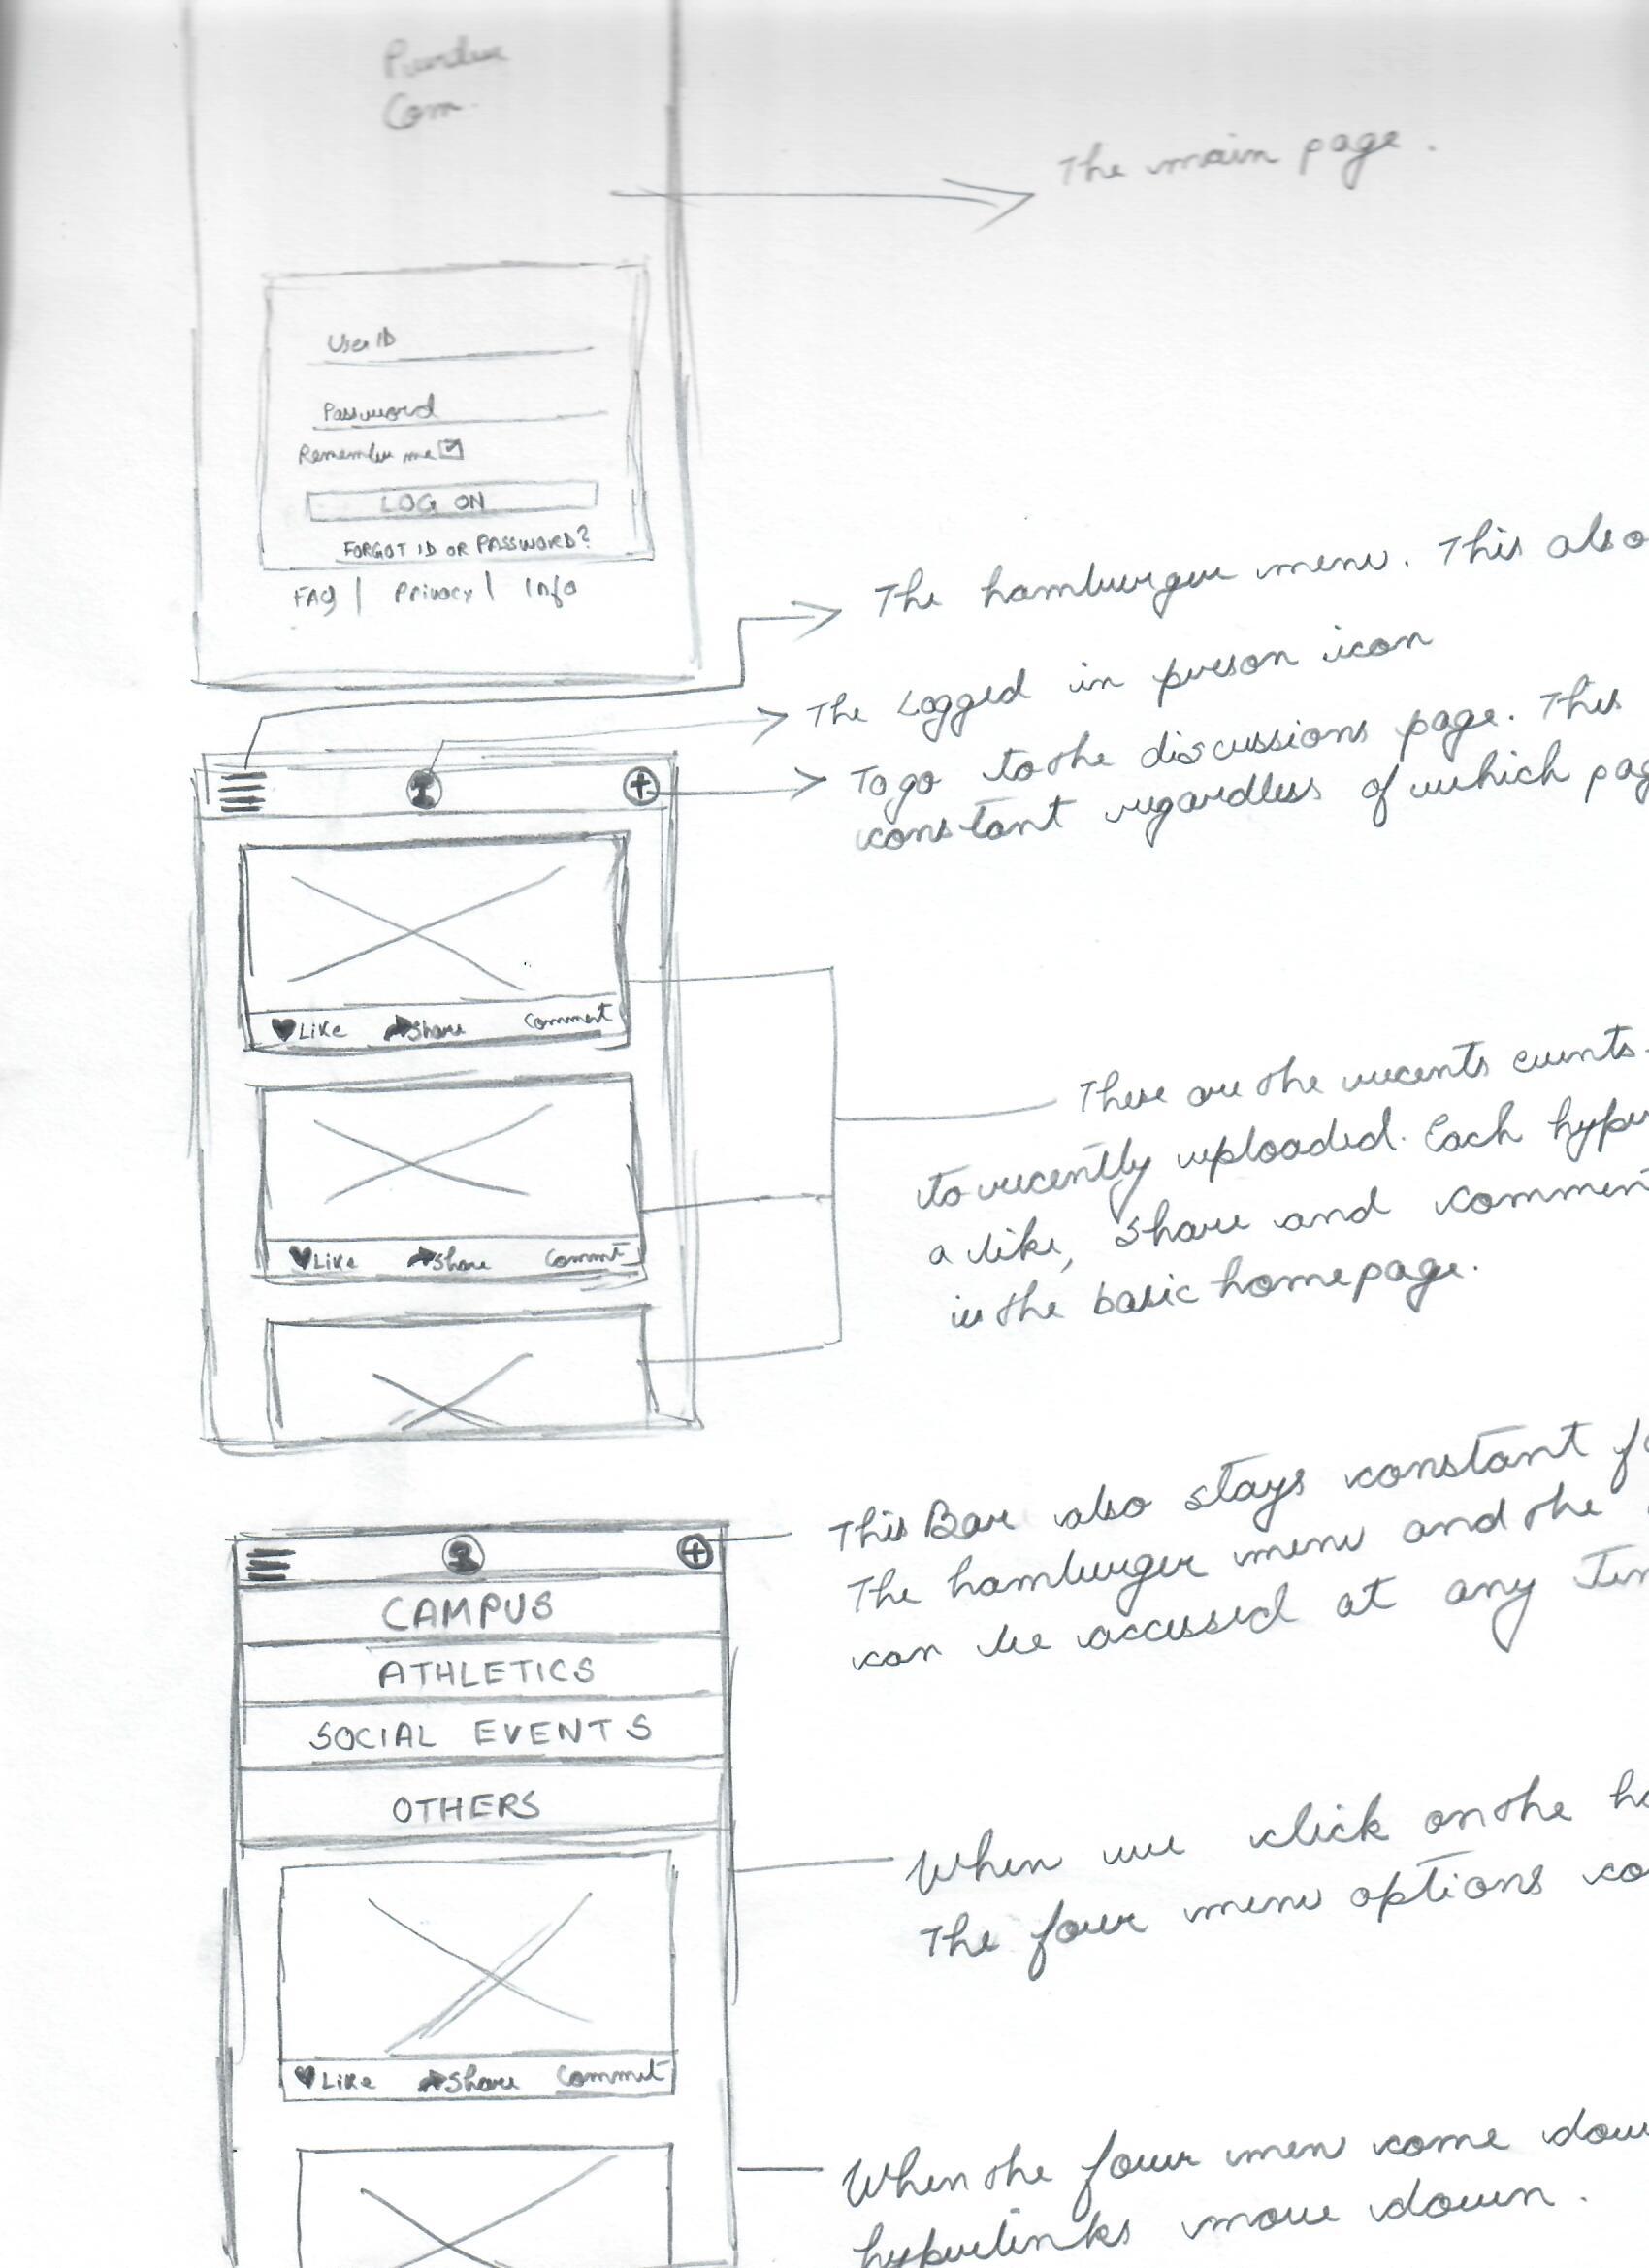 Purdue
Com.
The main page.
User ID
Password
Remember me
LOG ON
FORGOT ID OR PASSWORD?
FAQ | Privacy | Info
The hamburger menu. This also
The Logged in person icon
To go to the discussions page. This
constant regardless of which pag
Like Share Comment
These are the recents events.
to recently uploaded. Each hyper
a like, Share and commen
Like Share Comment
in the basic homepage.
This Bar also stays constant fo
The hamburger menu and the
can be accessed at any Tim
CAMPUS
ATHLETICS
SOCIAL EVENTS
OTHERS
When we click on the ha
The four menu options co
Like Share Comment
When the four men come dow
hyperlinks move down.